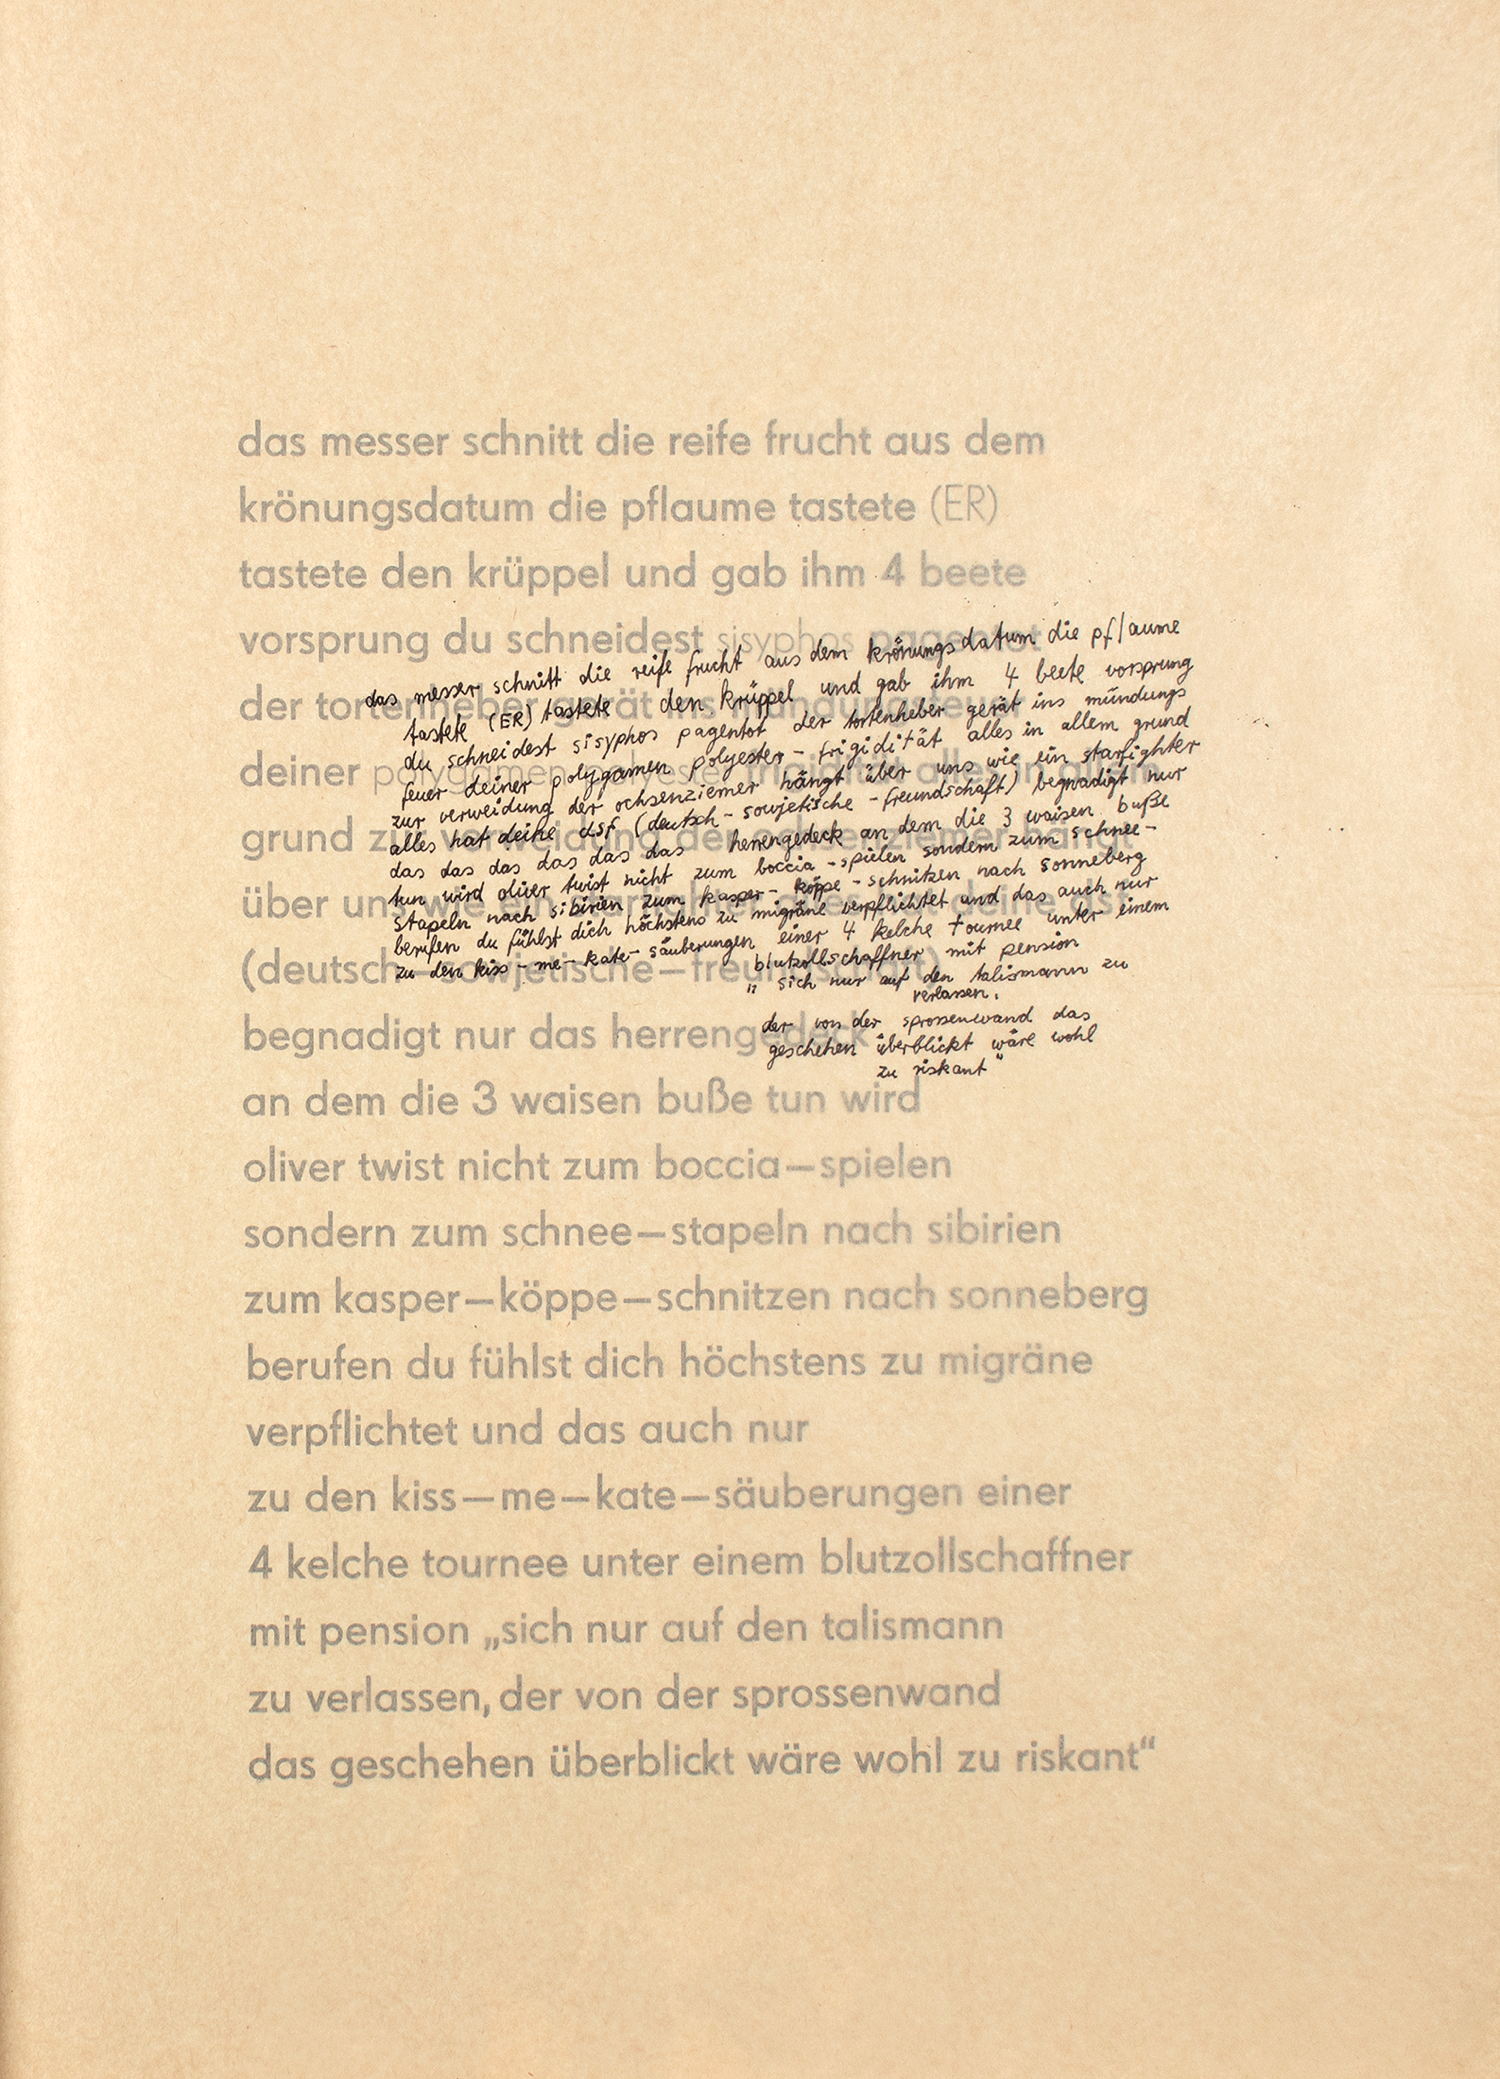 das messer schnitt die reife frucht aus dem
krönungsdatum die pflaume tastete (ER)
tastete den krüppel und gab ihm 4 beete
vorsprung du schneidest sisyphos pagentot
der tortenheber gerät ins mündungsfeuer
deiner polygamen polyester frigidität alles in allem
grund zur verweidung der ochsenziemer hängt
über uns wie ein starfighter alles hat deine dsf
(deutsch—sowjetische—freundschaft)
begnadigt nur das herrengedeck
an dem die 3 waisen buße tun wird
oliver twist nicht zum boccia—spielen
sondern zum schnee—stapeln nach sibirien
zum kasper—köppe—schnitzen nach sonneberg
berufen du fühlst dich höchstens zu migräne
verpflichtet und das auch nur
zu den kiss—me—kate—säuberungen einer
4 kelche tournee unter einem blutzollschaffner
mit pension „sich nur auf den talismann
zu verlassen, der von der sprossenwand
das geschehen überblickt wäre wohl zu riskant“
das messer schnitt die reife frucht aus dem krönungsdatum die pflaume
tastete (ER) tastete den krüppel und gab ihm 4 beete vorsprung
du schneidest sisyphos pagentot der tortenheber gerät ins mündungs
feuer deiner polygamen polyester - frigidität alles in allem grund
zur verweidung der ochsenziemer hängt über uns wie ein starfighter
alles hat deine dsf (deutsch - sowjetische - freundschaft) begnadigt nur
das das das das das das herrengedeck an dem die 3 waisen buße
tun wird oliver twist nicht zum boccia - spielen sondern zum schnee -
stapeln nach sibirien zum kasper - köppe - schnitzen nach sonneberg
berufen du fühlst dich höchstens zu migräne verpflichtet und das auch nur
zu den kiss - me - kate - säuberungen einer 4 kelche tournee unter einem
blutzollschaffner mit pension
„ sich nur auf den talismann zu
verlassen,
der von der sprossenwand das
geschehen überblickt wäre wohl
zu riskant“